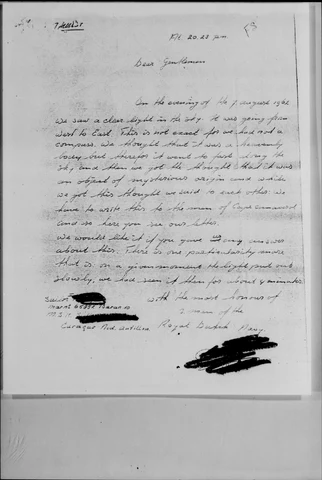 Time 20.20 pm
Dear Gentlemen
On the evening of the 7 august 1962
we saw a clear light in the sky. It was going from
West to East. This is not exact for we had not a
compass. We thought that it was a heavenly
body but therefor it went to fast along the
sky and then we got the thought that it was
an object of mysterious origin and while
we got this thought we said to each other we
have to write this to the men of Cape Canaveral
and so here you see our letter.
We would like it if you gave any answer
about this. There is one particularity more
that is on a given moment the light put out
slowly, we had seen it then for about 4 minutes
with the most honours of
2 men of the
Royal Dutch Navy
Sailor
Curaçao Ned. Antillen